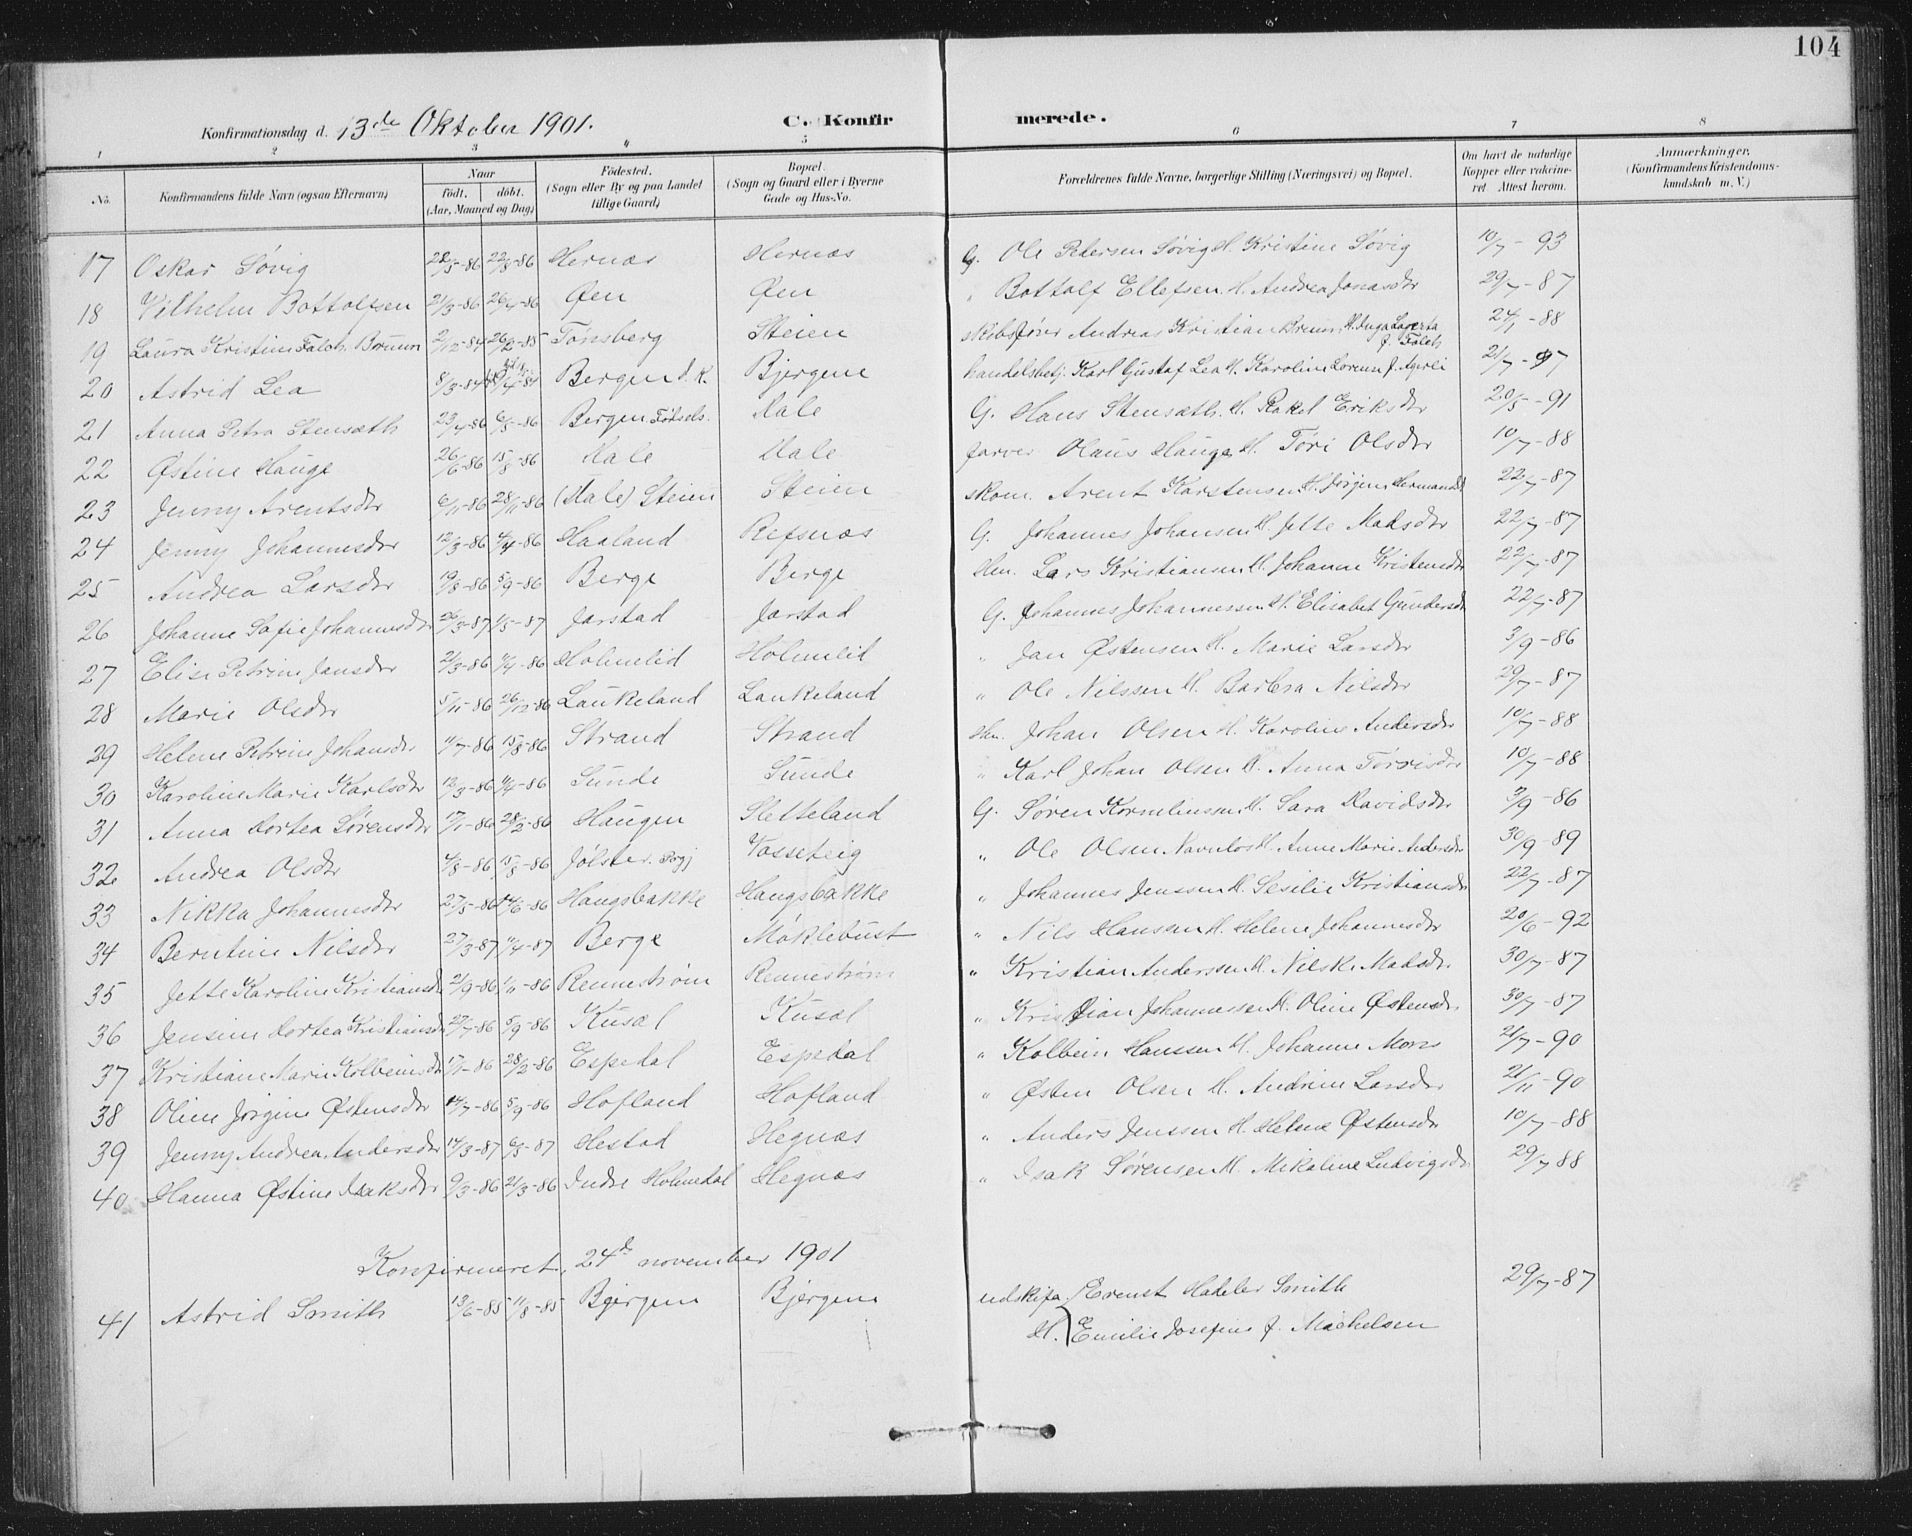 104
Konfirmationsdag d. 13de Oktober 1901. C. Konfirmerede.
1 2 3 4 5 6 7 8
No. Konfirmandens fulde Navn (ogsaa Efternavn) Naar født. døbt. (Aar, Maaned og Dag) Fødested. (Sogn eller By og paa Landet tillige Gaard) Bopæl. (Sogn og Gaard eller i Byerne Gade og Hus-No. Forældrenes fulde Navne, borgerlige Stilling (Næringsvei) og Bopæl. Om havt de naturlige Kopper eller vakcineret Attest herom. Anmærkninger. (Konfirmandens Kristendomskundskab m. V.)
17 Oskar Søvig 22/5-86 22/8-86 Hernæs Hernæs G. Ole Petersen Søvig H. Kristine Søvig 10/7-93
18 Vilhelm Bottolfsen 21/3-86 26/4-86 Øen Øen " Bottolf Ellefsen H. Andrea Jonasdr 29/7-87
19 Laura Kristine Falch 2/12-84 26/2-85 Tønsberg Steien skibsfører Andreas Kristian H. Inga f. Falch 24/1-88
20 Astrid Lea 8/3-84 Bergen d.k. Bjergene handelsbetj. Karl Gustaf Lea H. Karoline 21/7-87
21 Anna Petra Stensæth 23/4-86 6/5-86 Bergen Fødsels. Dale G. Hans Stensæth H. Rakel Eriksdr 20/5-91
22 Østine Hauge 26/6-86 15/8-86 Dale Dale farver Olaus Hauge H. Tøri Olsdr 10/7-88
23 Jenny Arentsdr 6/11-86 28/11-86 (Dale) Steien Steien skom. Arent Karstensen H. Jørgine Hermansd 22/7-87
24 Jenny Johannesdr 12/3-86 4/4-86 Haaland Refsnæs G. Johannes Johansen H. Jette Madsdr 22/7-87
25 Andrea Larsdr 19/8-86 5/9-86 Berge Berge Hm. Lars Kristiansen H. Johanne Kristensdr 22/7-87
26 Johanne Sofie Johannesdr 26/3-87 1/5-87 Jarstad Jarstad G. Johannes Johannessen H. Elisabet Gundersdr 22/7-87
27 Elise Petrine Jansdr 21/3-86 11/4-86 Holmelid Holmelid " Jan Østensen H. Marie Larsdr 3/9-86
28 Marie Olsdr 5/11-86 26/12-86 Laukeland Laukeland " Ole Nilssen H. Barbra Nilsdr 29/7-87
29 Helene Petrine Johansdr 11/7-86 15/8-86 Strand Strand Hm. Johan Olsen H. Karoline Andersdr 10/7-88
30 Karoline Marie Karlsdr 12/3-86 11/4-86 Sunde Sunde " Karl Johan Olsen H. Anna Torrisdr 10/7-88
31 Anna Dortea Sørensdr 17/1-86 28/2-86 Haugen Sletteland G. Søren Kornelinssen H. Sara Davidsdr 3/9-86
32 Andrea Olsdr 4/8-86 15/8-86 Jølster Vasseteig " Ole Olsen Navnløs H. Anne Marie Andersdr 30/9-89
33 Nikka Johannesdr 27/5-86 14/6-86 Haugsbakke Haugsbakke " Johannes Jenssen H. Sesilie Kristiansdr 22/7-87
34 Berntine Nilsdr 27/3-87 11/4-87 Berge Møklebust " Nils Hansen H. Helene Johannesdr 20/6-92
35 Jette Karoline Kristiansdr 21/9-86 1/11-86 Rennestrøm Rennestrøm " Kristian Anderssen H. Nilske Madsdr 30/7-87
36 Jensine Dortea Kristiansdr 27/7-86 5/9-86 Kusæl Kusæl " Kristian Johannessen H. Oline Østensdr 30/7-87
37 Kristiane Marie Kolbeinsdr 17/1-86 28/2-86 Espedal Espedal " Kolbein Hanssen H. Johanne Mons 21/7-90
38 Oline Jørgine Østensdr 14/7-86 5/9-86 Hofland Hofland " Østen Olsen H. Andrine Larsdr 21/11-90
39 Jenny Andrea Andersdr 14/3-87 6/5-87 Hestad Hegnæs " Anders Jenssen H. Helene Østensdr 10/7-88
40 Hanna Østine Isaksdr 9/3-86 21/3-86 Indre Holmedal Hegnæs " Isak Sørensen H. Mikaline Ludvigsdr 29/7-88
Konfirmeret, 24de november 1901
41 Astrid Smith 13/6-85 11/8-85 Bjergene Bjergene udskifa. Ernst Hadeler Smith 29/7-87
H. Emilie Josefine f. Michelsen